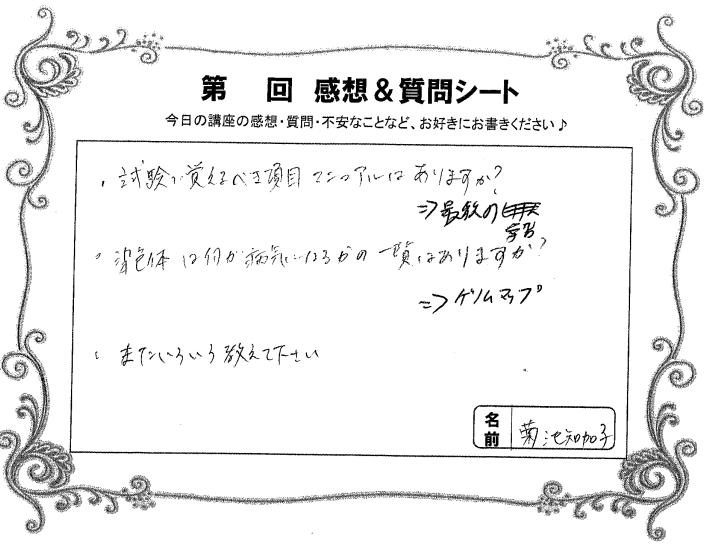 第 回 感想&質問シート
今日の講座の感想・質問・不安なことなど、お好きにお書きください♪
・試験で覚えるべき項目マニュアルはありますか?
⇒最後の
学習
・染色体は何が病気になるかの一覧はありますか?
⇒ゲノムマップ
・またいろいろ教えて下さい
名前 菊池知加子